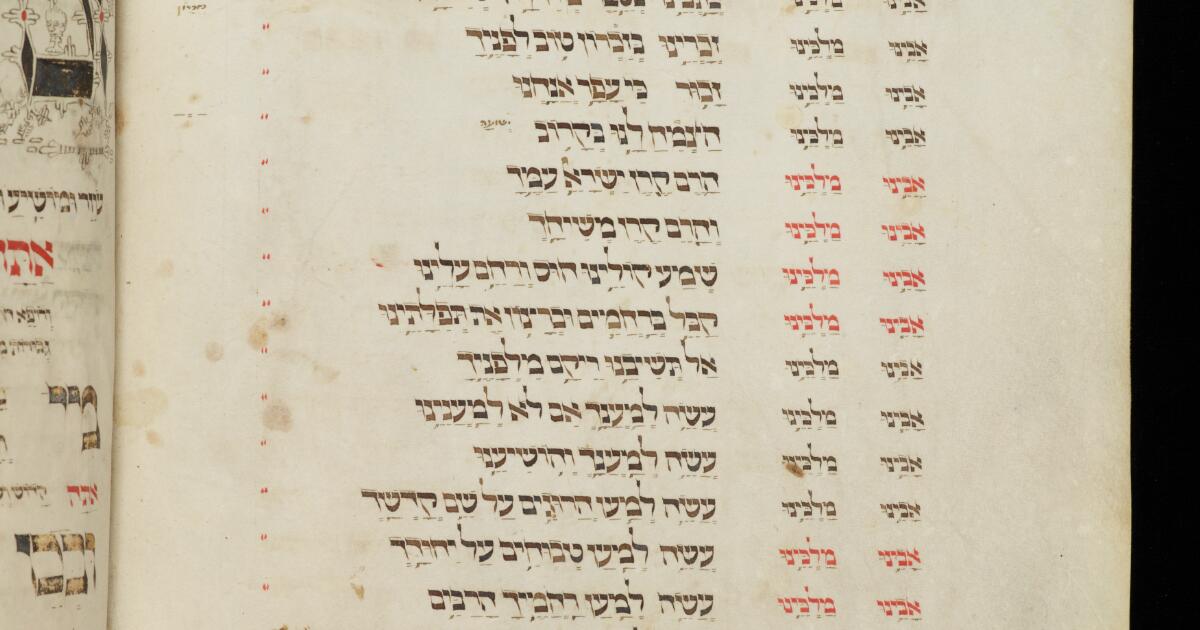 אבינו מלכינו זכרינו בזכרון טוב לפניך
אבינו מלכינו זכור כי עפר אנחנו
אבינו מלכינו הצמח לנו ישועה בקרוב
אבינו מלכינו הרם קרן ישרא עמך
אבינו מלכינו והרם קרן משיחך
אבינו מלכינו שמע קולינו חוס ורחם עלינו
אבינו מלכינו קבל ברחמים וברצון את תפלתינו
אבינו מלכינו אל תשיבנו ריקם מלפניך
אבינו מלכינו עשה למענך אם לא למענינו
אבינו מלכינו עשה למענך והושיענו
אבינו מלכינו עשה למען הרוגים על שם קדשך
אבינו מלכינו עשה למען טבוחים על יחודך
אבינו מלכינו עשה למען רחמיך הרבים